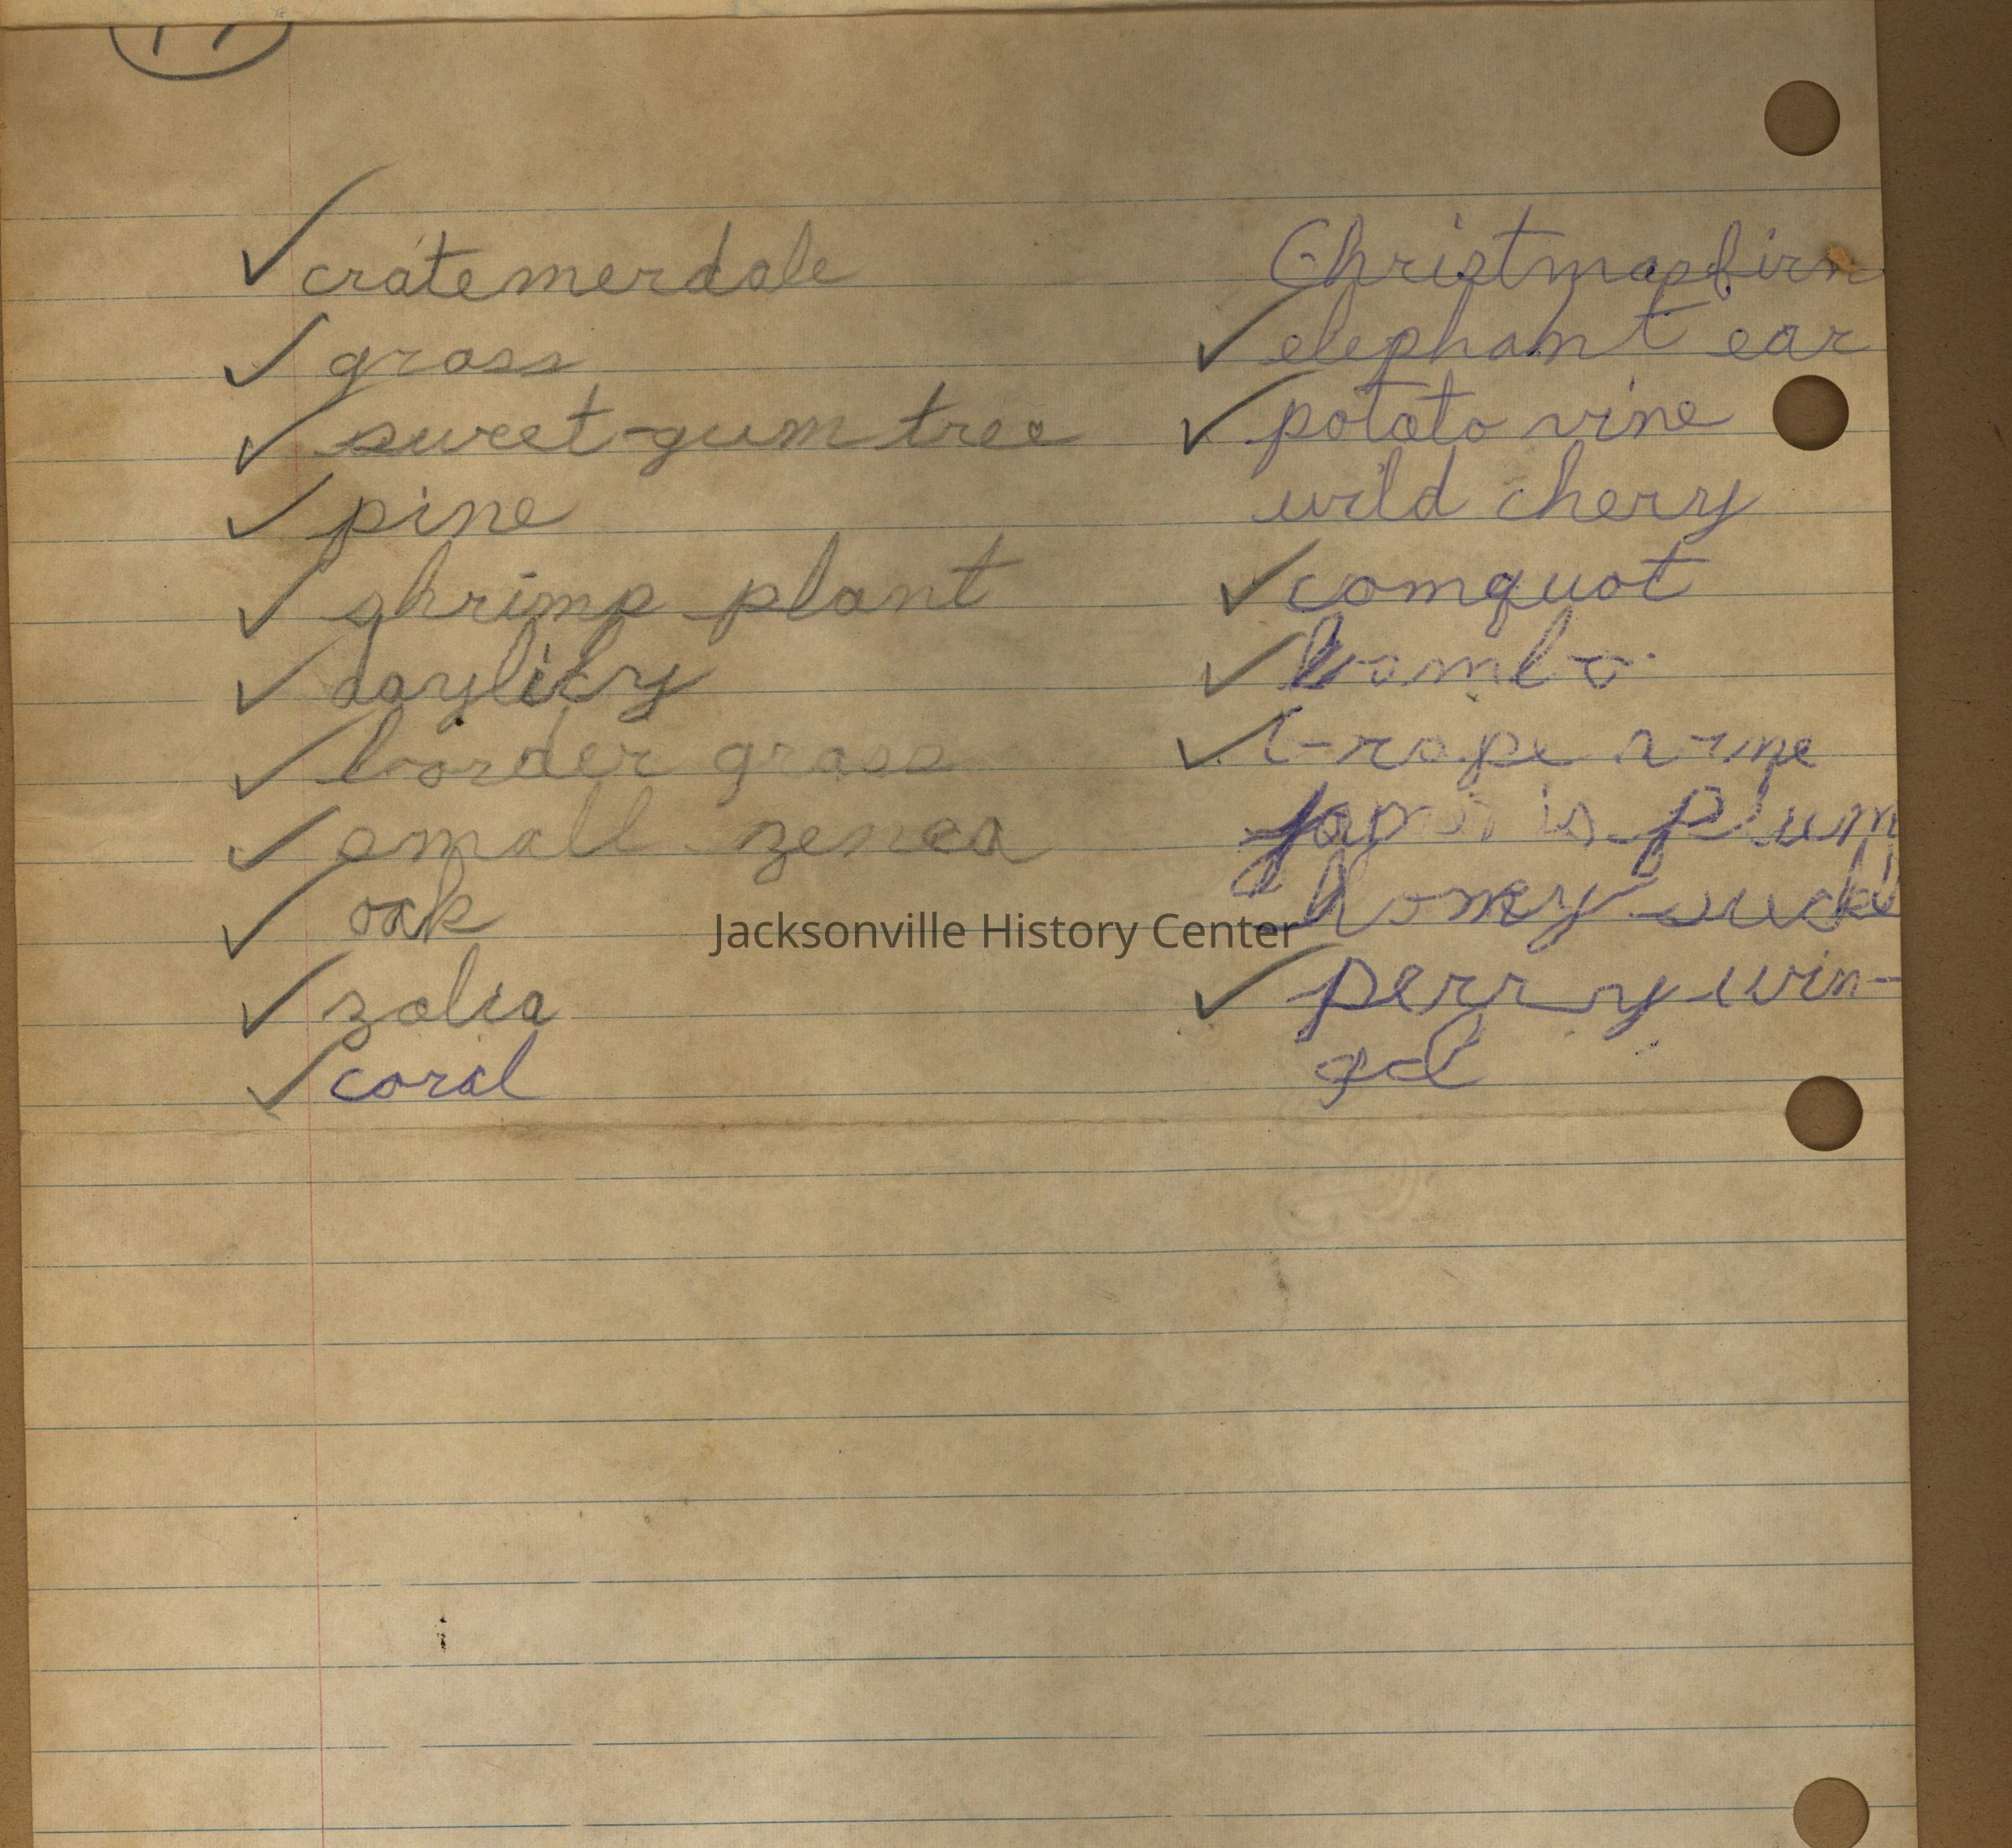 ✓ cratemerdale
✓ grass
✓ sweet-gum tree
✓ pine
✓ shrimp plant
✓ daylily
✓ border grass
✓ small zenea
✓ oak
✓ zalia
✓ coral
Christmasfirn
✓ elephant ear
✓ potato vine
wild chery
✓ comquot
✓ bambo
✓ Grape vine
is plum
honey suckl
✓ perry win-
gel
Jacksonville History Center